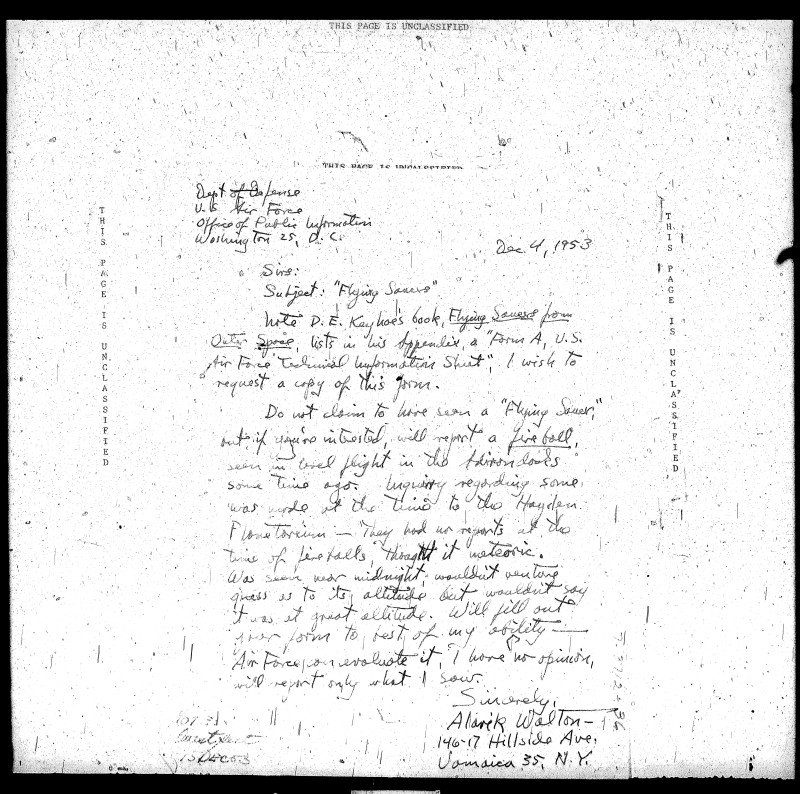 THIS PAGE IS UNCLASSIFIED
THIS PAGE IS UNCLASSIFIED
THIS PAGE IS UNCLASSIFIED
THIS PAGE IS UNCLASSIFIED
Dept of Defense
U.S. Air Force
Office of Public Information
Washington 25, D.C.
Dec. 4, 1953
Sirs:
Subject: "Flying Saucers"
Note D.E. Keyhoe's book, Flying Saucers from
Outer Space, lists in his Appendix, a "Form A, U.S.
Air Force Technical Information Sheet", I wish to
request a copy of this form.
Do not claim to have seen a "Flying Saucer,"
but, if you're intrested, will report a fireball,
seen in level flight in the Adirondacks
some time ago. Inquiry regarding same
was made at the time to the Hayden
Planetarium — They had no reports at the
time of fireballs, thought it meteoric.
Was seen near midnight, wouldn't venture
guess as to its altitude but wouldn't say
it was at great altitude. Will fill out
your form to best of my ability —
Air Force can evaluate it, I have no opinion,
will report only what I saw.
Sincerely,
Alarik Walton —
146-17 Hillside Ave.
Jamaica 35, N.Y.
15 Dec 53